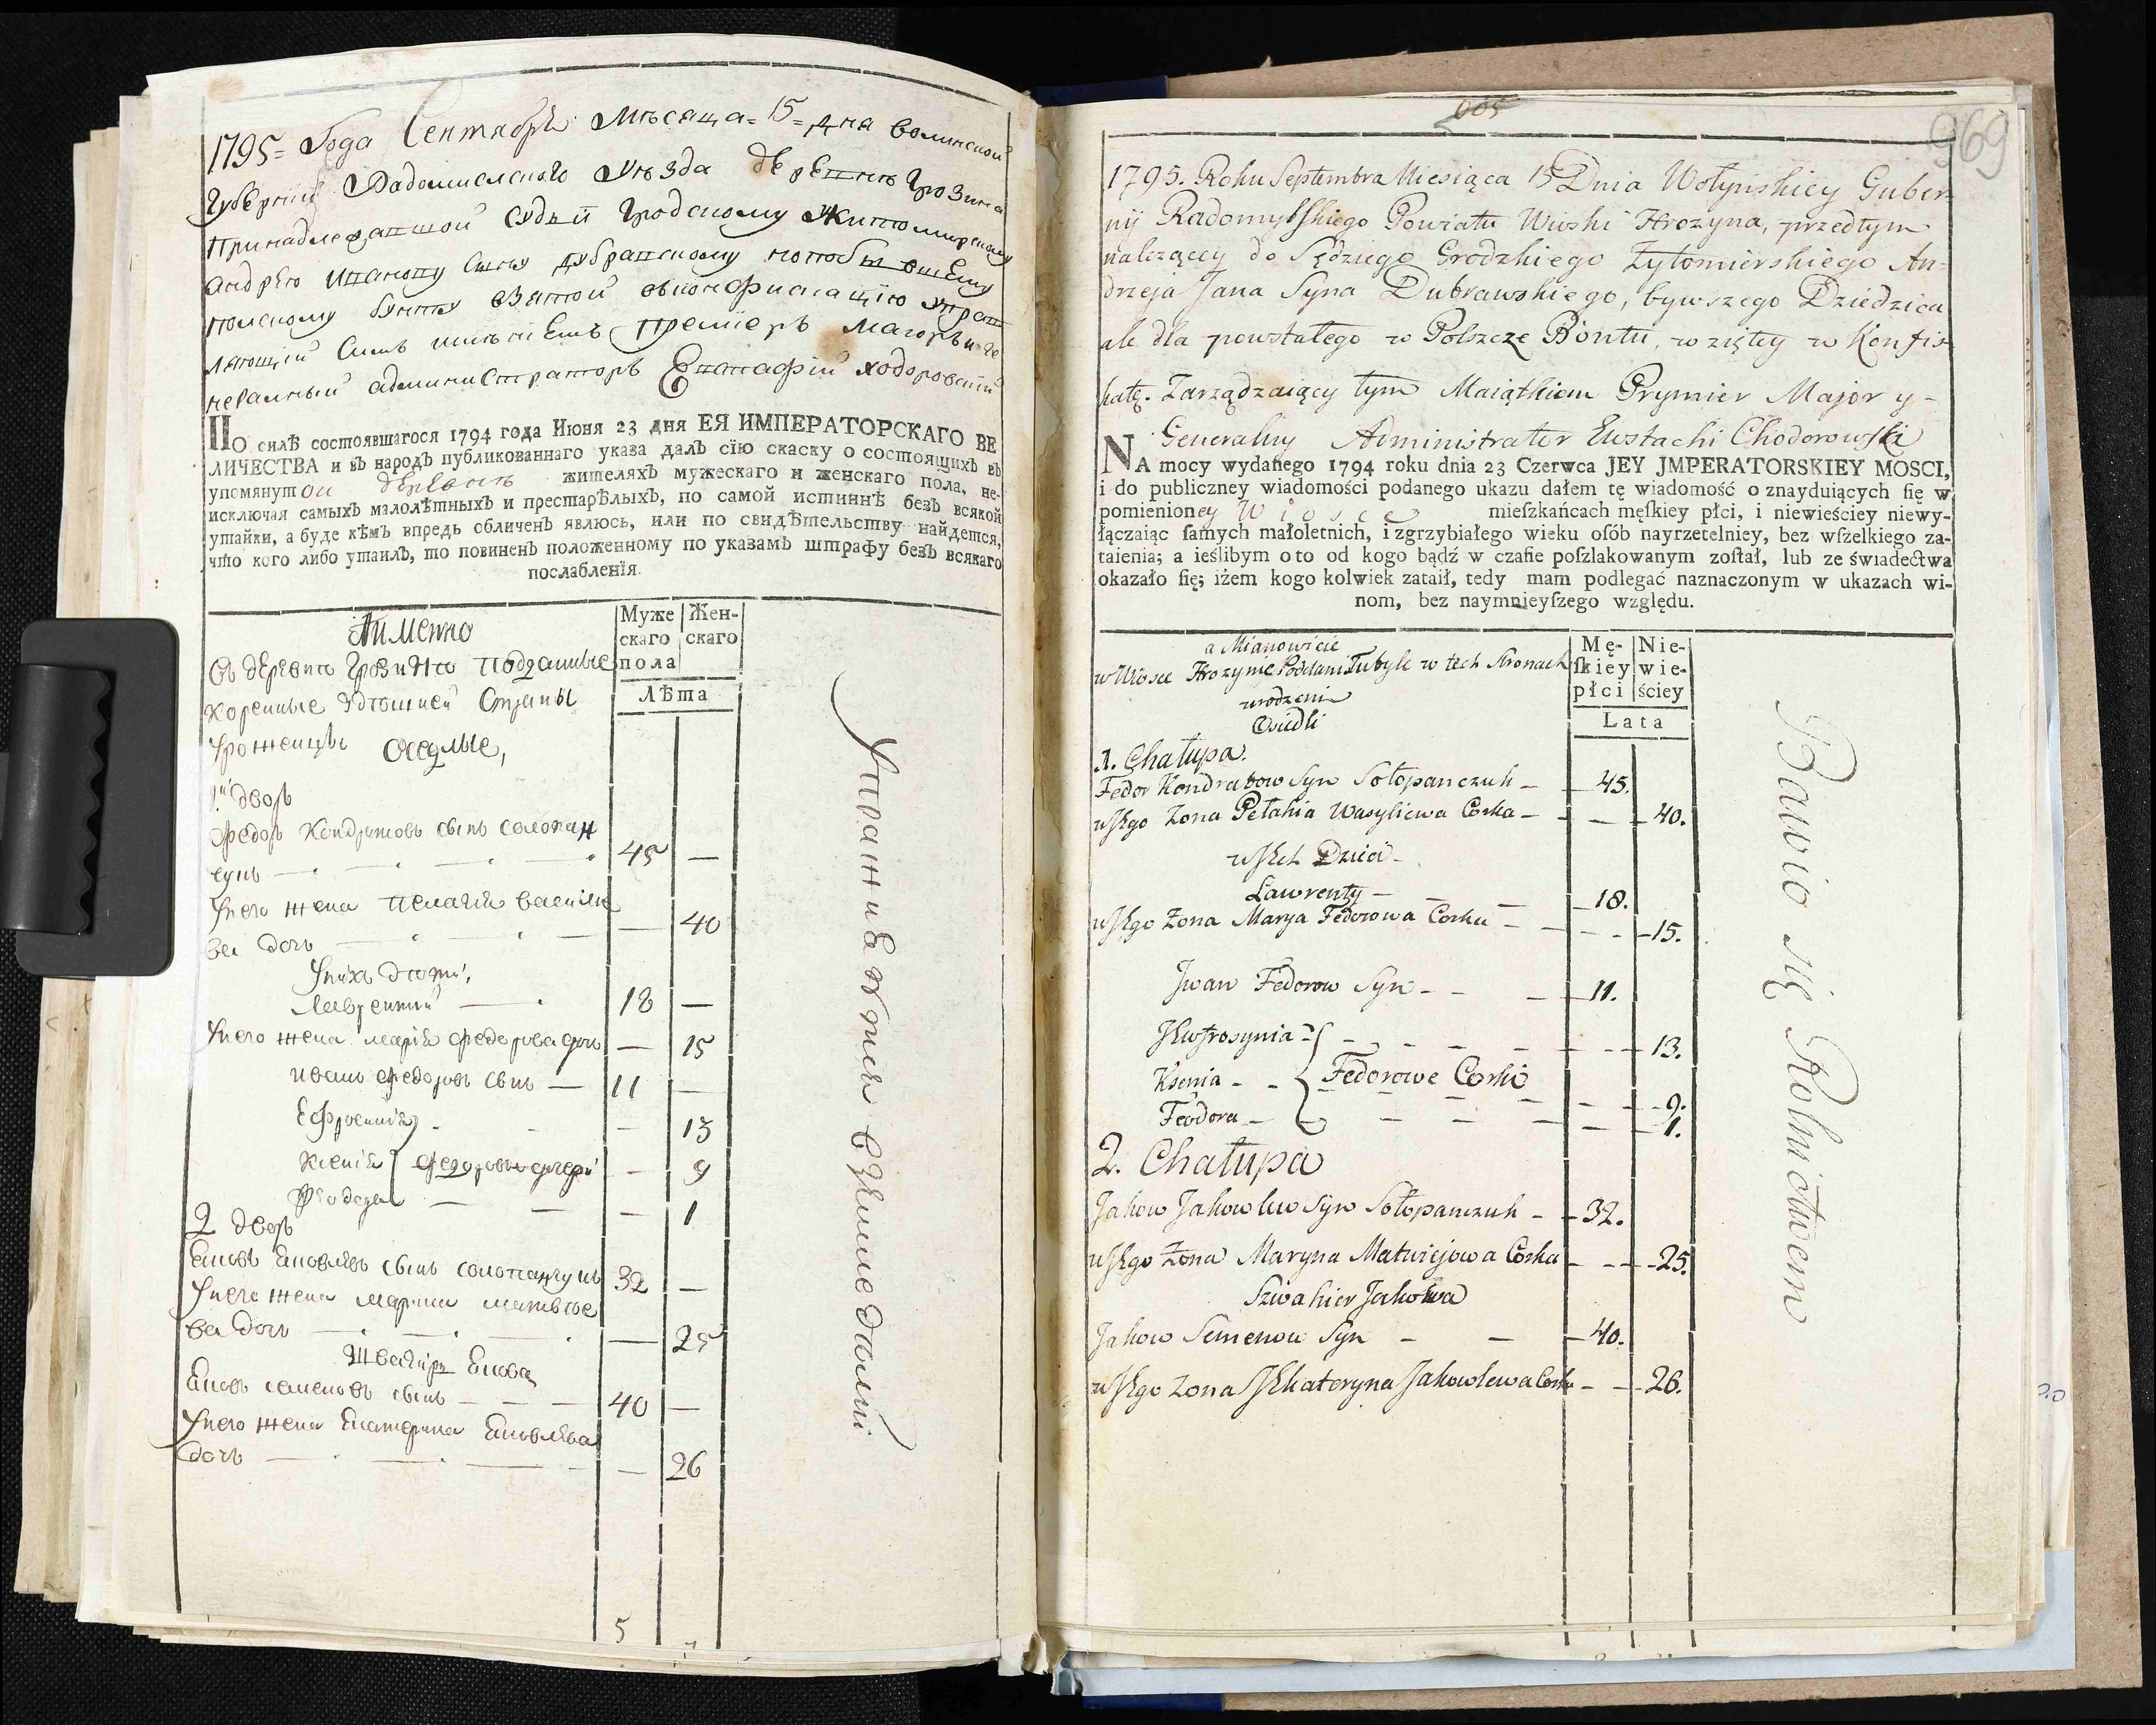 1795= Года Сентября Мѣсяца= 15= дня волинской
Губернии Радомисльского Уѣзда деревнѣ Грозина
Принадлежавшой судьи Гродскому Житомирскому
Андрею Иванову Сыну дубравскому
полскому бунту взятой вконфискацию управ
ляющий Симъ имѣниемъ Премиеръ Маиоръ и ге
неральный администраторъ Евстафий ходоровский
ПО силѣ состоявшагося 1794 года Июня 23 дня ЕЯ ИМПЕРАТОРСКАГО ВЕ
ЛИЧЕСТВА и въ народъ публикованнаго указа далъ сїю скаску о состоящихъ въ
упомянутои деревнѣ жителяхъ мужескаго и женскаго пола, не-
исключая самыхъ малолѣтныхъ и престарѣлыхъ, по самой истиннѣ безъ всякой
утайки, а буде кѣмъ впредь обличенъ явлюсь, или по свидѣтельству найдется,
что кого либо утаилъ, то повиненъ положенному по указамъ штрафу безъ всякаго
послабленїя.
Имянно
Муже Жен-
скаго скаго
пола
Лѣта
Въ деревнѣ Грозинѣ подданные
коренные здѣшней Страны
Уроженцы оседлые,
1й дворъ
Федоръ Кондратовъ сынъ солопан
чукъ 45 —
Унего жена Пелагия василие
ва дочь — 40
Унихъ дѣти,
Лаврентий 18 —
Унего жена мария федорова дочь — 15
иванъ федоровъ сынъ — 11 —
Ефросиния — 13
Ксения } федоровы дочери — 9
Феодора — 1
2 дворъ
Яковъ Яковлевъ сынъ солопанчукъ 32 —
Унего жена марина матвѣе
ва дочь — 25
Швагиръ Якова
Яковъ семеновъ сынъ 40 —
Унего жена Екатерина Яковлева
дочь — 26
5 7
Упражняются вземледелии
969
1795. Roku Septembra Miesiąca 15 Dnia Wołyńskiey Guber-
nij Radomyslskiego Powiatu Wioski Hrozyna, przedtym
należącey do Sędziego Grodzkiego Żytomierskiego An-
drzeja Jana Syna Dubrawskiego, bywszego Dziedzica
ale dla powstałego w Polszcze Bontu, wziętey w Konfis-
katę. Zarządzaiący tym Maiątkiem Prymier Major y -
Generalny Administrator Eustachi Chodorowski
NA mocy wydanego 1794 roku dnia 23 Czerwca JEY JMPERATORSKIEY MOSCI,
i do publiczney wiadomości podanego ukazu dałem tę wiadomość o znayduiących ſię w
pomienioney Wiosce mieſzkańcach męſkiey płci, i niewieściey niewy-
łączaiąc ſamych małoletnich, i zgrzybiałego wieku oſób nayrzetelniey, bez wſzelkiego za-
taienia; a ieślibym oto od kogo bądź w czaſie poſzlakowanym zoſtał, lub ze świadectwa
okazało ſię; iżem kogo kolwiek zataił, tedy mam podlegać naznaczonym w ukazach wi-
nom, bez naymnieyſzego względu.
a Mianowicie
w Wiosce Hrozynie Poddani Tubyle w tech Stronach
urodzeni
Osiedli
Mę- Nie-
ſkiey wie-
płci ściey
Lata
1. Chałupa.
Fedor Kondratow Syn Sołopanczuk - 45.
u Jego Żona Pełahia Wasyliewa Corka - 40.
u Jich Dzieci -
Lawrenty - 18.
u Jego Żona Marya Fedorowa Corka - 15.
Jwan Fedorow Syn - 11.
Jewfrosynia - 13.
Ksenia - { Fedorowe Corki 9.
Feodora - 1.
2. Chałupa
Jakow Jakowlew Syn Sołopanczuk - 32.
u Jego Żona Maryna Matwiejowa Corka - 25.
Szwakier Jakowa
Jakow Semenow Syn - 40.
u Jego Żona Jekateryna Jakowlewa Corka - 26.
Bawio się Rolnictwem